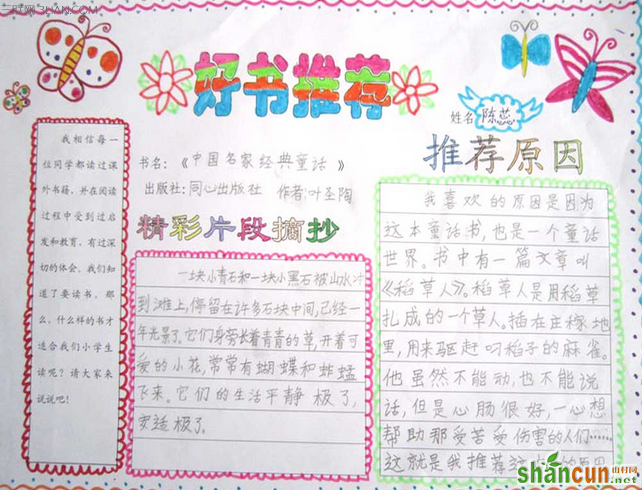 好书推荐
姓名
陈蕊
我相信每一
位同学都读过课
外书籍，并在阅读
过程中受到过启
发和教育，有过深
切的体会。我们知
道了要读书，那
么，什么样的书才
适合我们小学生
读呢？请大家来
说说吧！
书名：《中国名家经典童话》
出版社：同心出版社 作者：叶圣陶
精彩片段摘抄
一块小青石和一块小黑石被山水冲
到滩上，停留在许多石块中间，已经一
年光景了。它们身旁长着青青的草，开着可
爱的小花，常常有蝴蝶和蚱蜢
飞来。它们的生活平静极了，
安适极了。
推荐原因
我喜欢的原因是因为
这本童话书，也是一个童话
世界。书中有一篇文章叫
《稻草人》。稻草人是用稻草
扎成的一个草人。插在庄稼地
里，用来驱赶叼稻子的麻雀。
他虽然不能动，也不能说
话，但是心肠很好，一心想
帮助那受苦受伤害的人们……
这就是我推荐这
的原因
shancun
山村网
.net